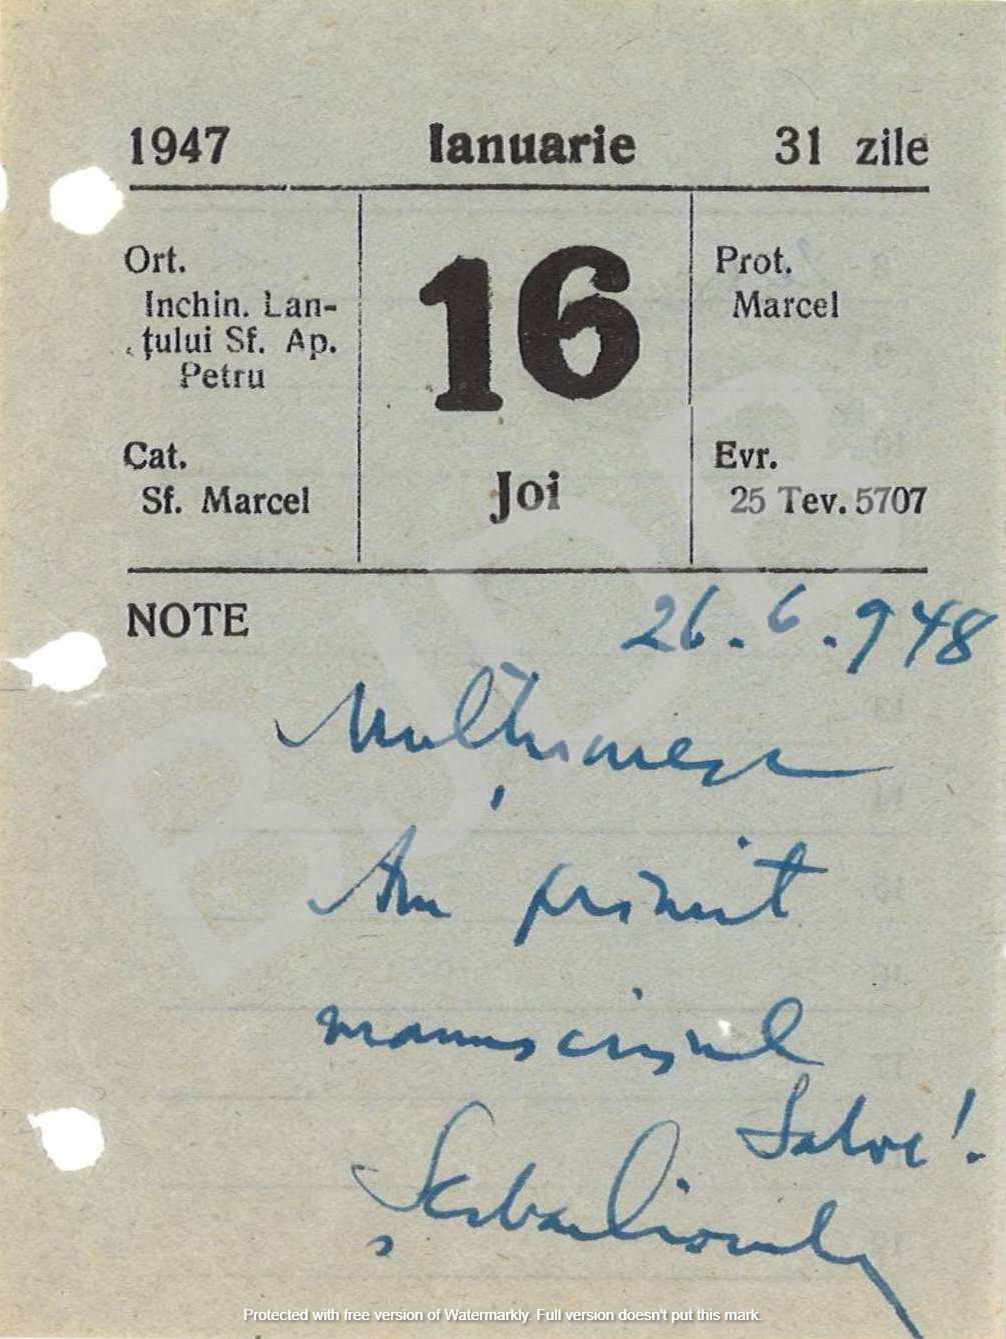 1947 Ianuarie 31 zile
Ort.
Inchin. Lan-
ţului Sf. Ap.
Petru
Cat.
Sf. Marcel
16
Joi
Prot.
Marcel
Evr.
25 Tev. 5707
NOTE
26.6.948
Mulţumesc
Am primit
manuscrisul
Salve!
Protected with free version of Watermarkly. Full version doesn't put this mark.